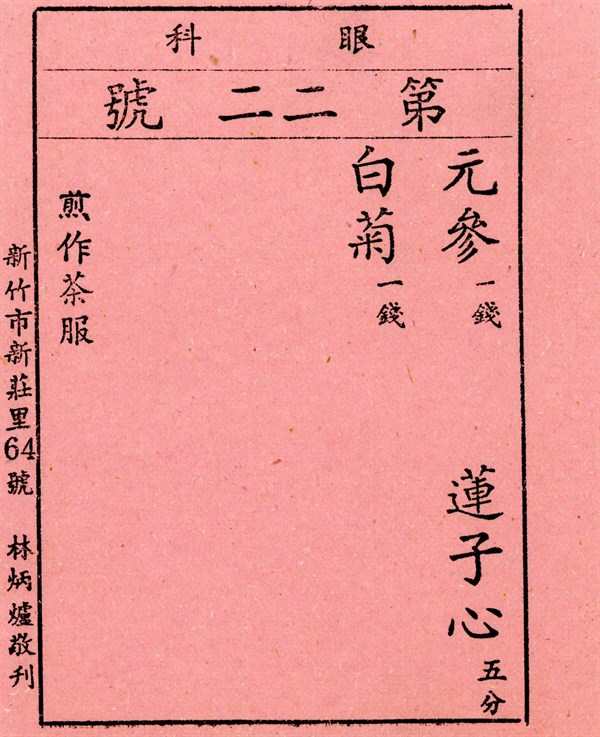 眼科
第二二號
元參一錢
蓮子心五分
白菊一錢
煎作茶服
新竹市新莊里64號 林炳爐敬刋